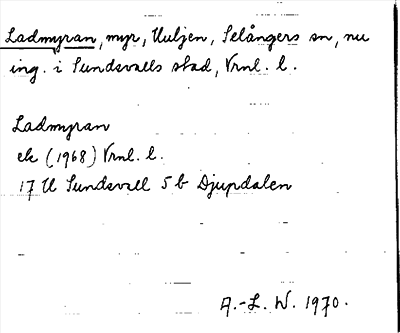 Ladmyran, myr, Huljen, Selångers sn, nu
ing. i Sundsvalls stad, Vrnl. l.
Ladmyran
ek (1968) Vrnl. l.
17 H Sundsvall 5 b Djupdalen
A.-L. W. 1970.